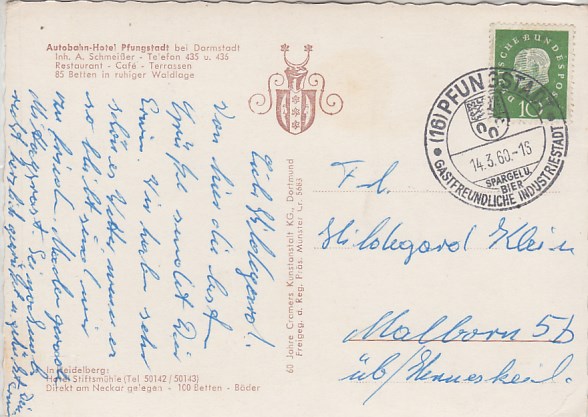 Autobahn-Hotel Pfungstadt bei Darmstadt
Inh. A. Schmeißer - Telefon 435 u. 436
Restaurant - Café - Terrassen
85 Betten in ruhiger Waldlage
Lieb Hildegard!
Von hier die besten
Grüße sendet Dir
Erwin. Wir haben sehr
schönes Wetter, wenn es
so bleibt sind wir
In Heidelberg:
Hotel Stiftsmühle (Tel 50142 / 50143)
Direkt am Neckar gelegen - 100 Betten - Bäder
60 Jahre Cramers Kunstanstalt KG., Dortmund
Freigeg. d. Reg. Präs. Münster Cr. 5683
DEUTSCHE BUNDESPOST
10
(16) PFUNGSTADT
14.3.60.-16
SPARGEL U.
BIER
GASTFREUNDLICHE INDUSTRIESTADT
Frl.
Hildegard Klein
Malborn 5b
üb/Hermeskeil.